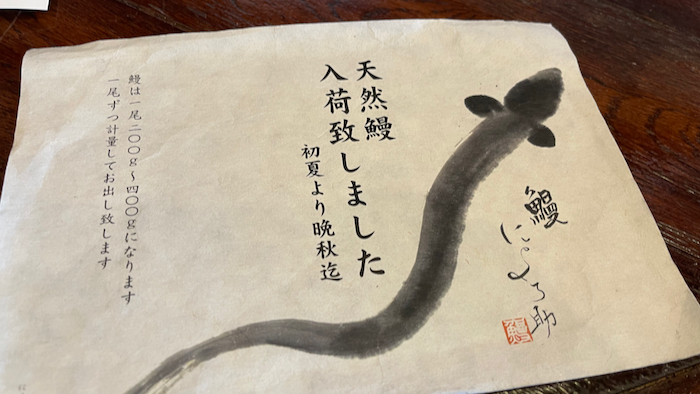 鰻
にょろ助
天然鰻
入荷致しました
初夏より晩秋迄
鰻は一尾二〇〇g〜四〇〇gになります
一尾ずつ計量してお出し致します